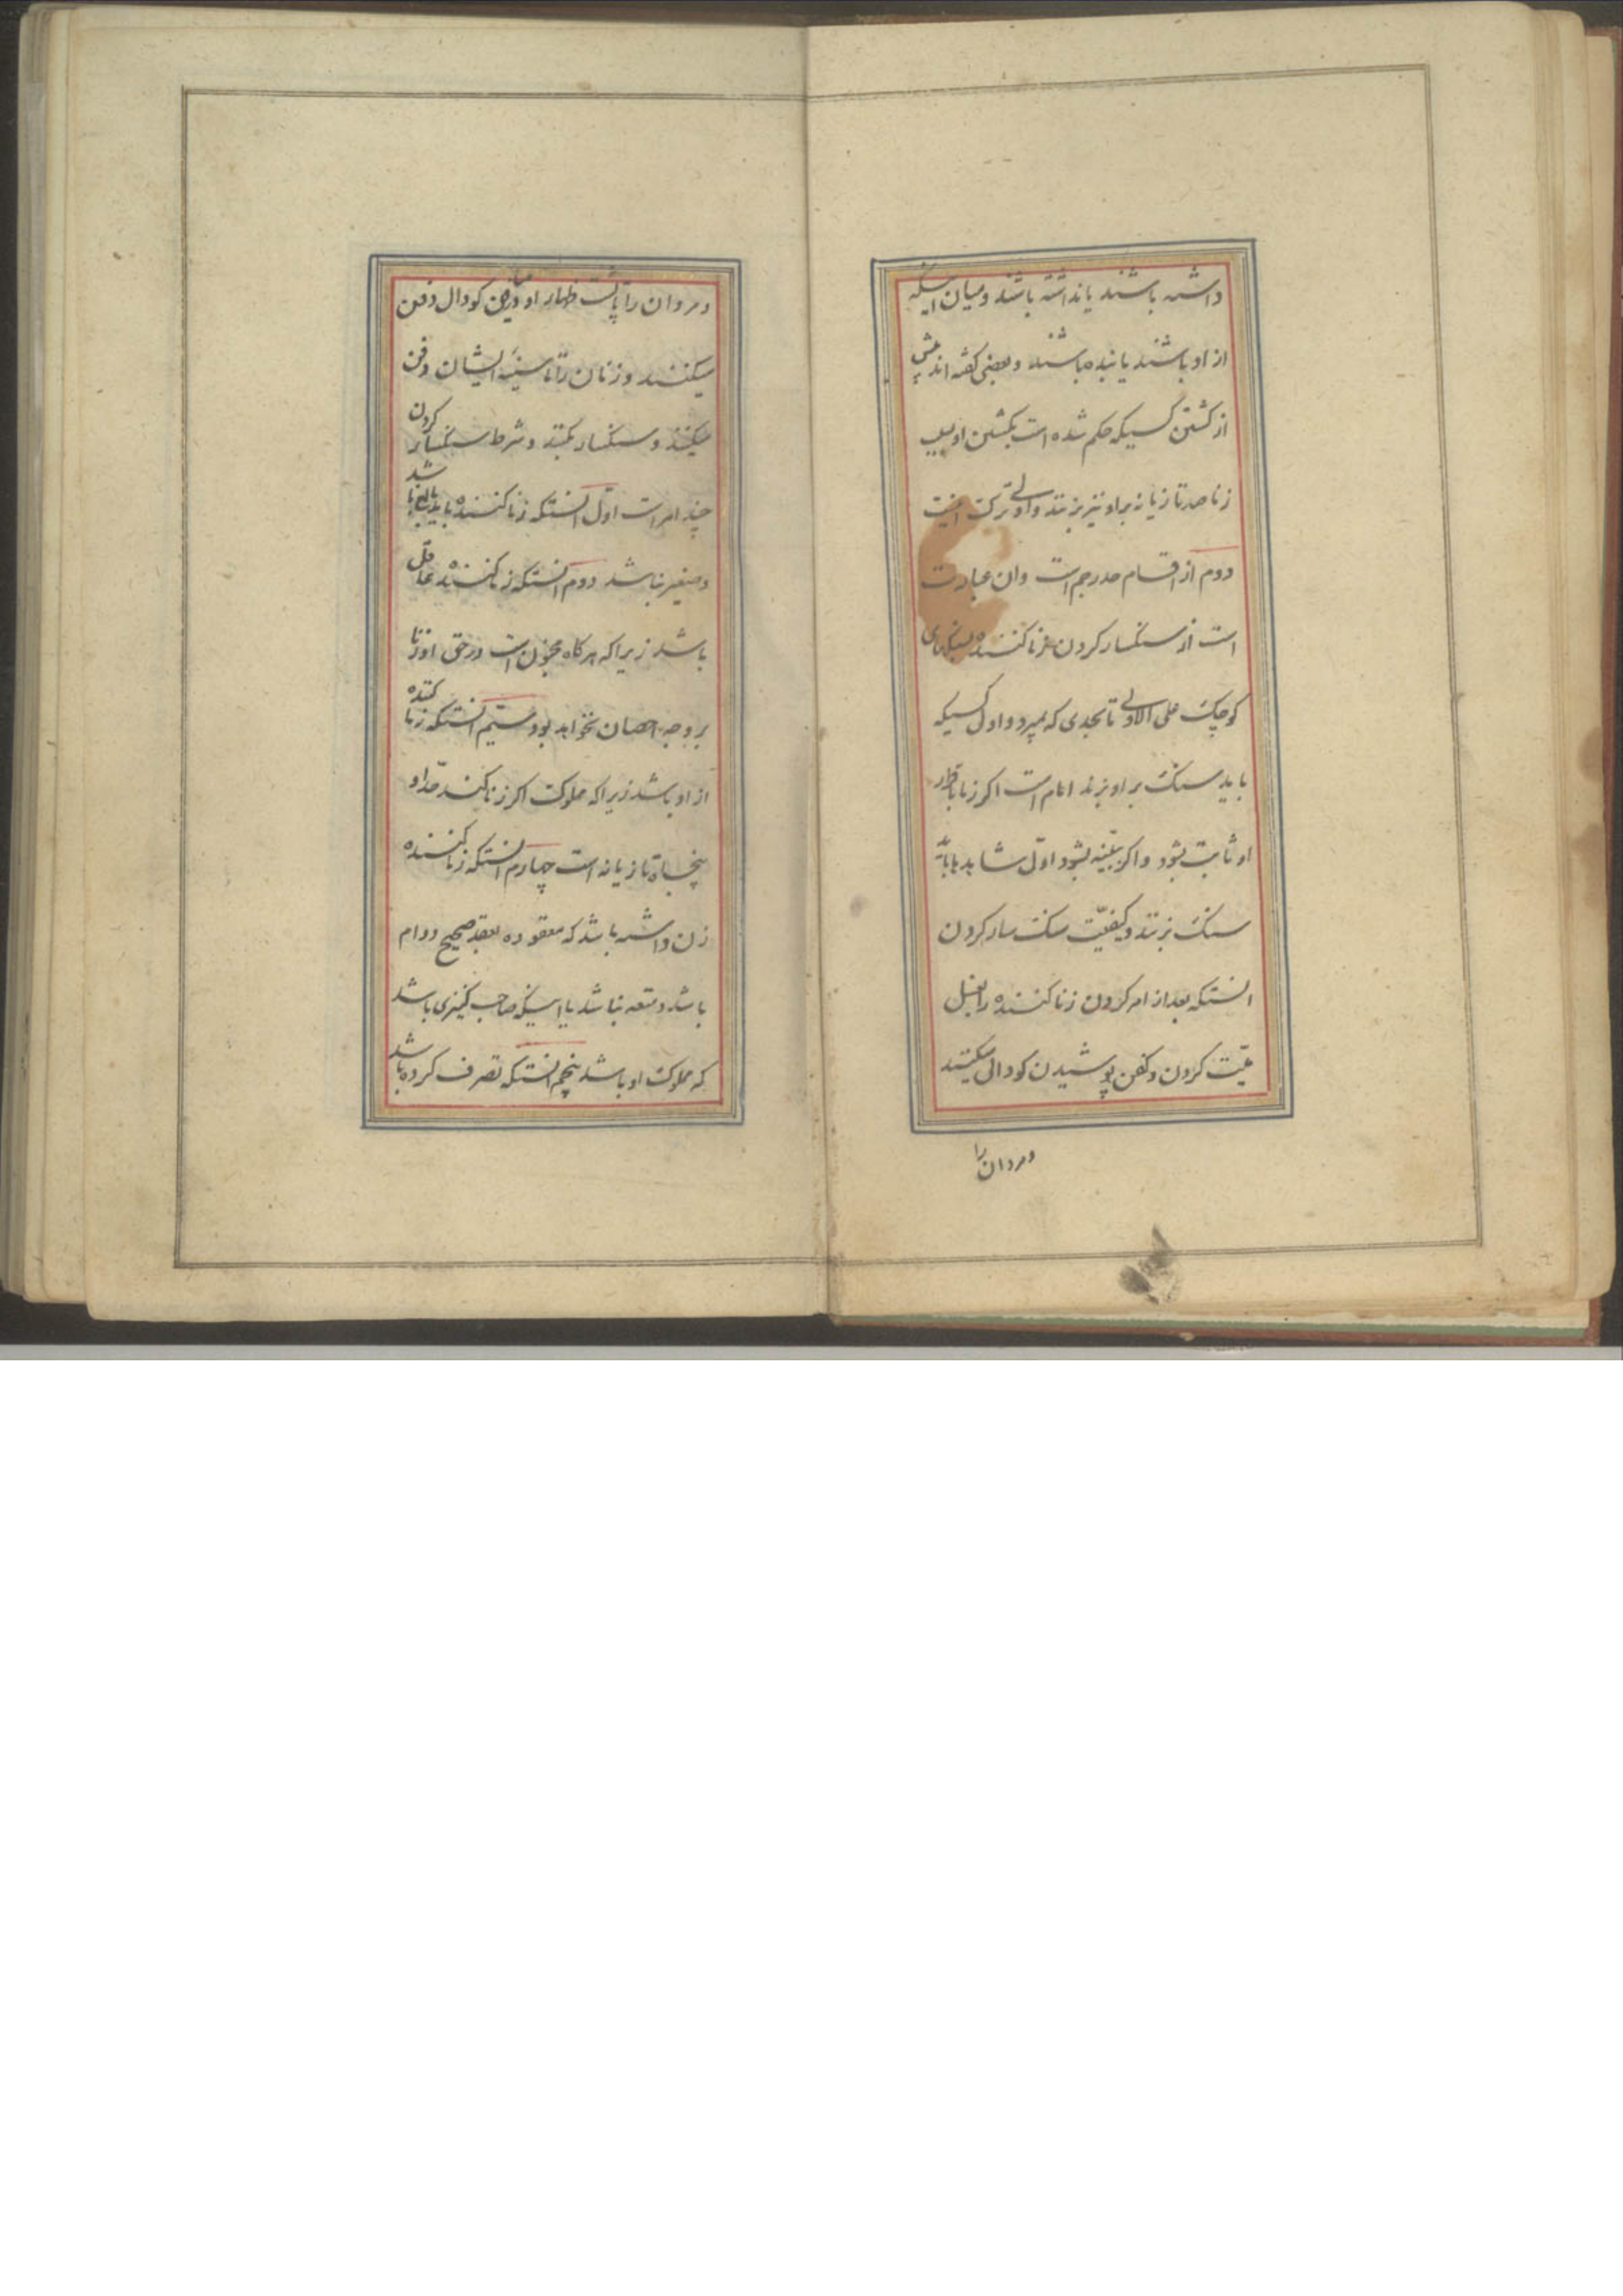 داشته باشند یا نداشته باشند و میان اینکه
ازاد باشند یا بنده باشند و بعضی گفته اند پیش
از کشتن کسیکه حکم شده است بکشتن او بسبب
زنا صد تازیانه براو نیز بزنند و اولی ترک
دوم از اقسام حد رجم است وان عبارت
است از سنکسار کردن زنا کننده بسنکهای
کوچک علی الاولی تا بحدی که بمیرد و اول کسیکه
باید سنک براو بزند امام است اکر زنا باقرار
او ثابت بشود و اکر ببینه بشود اول شاهدها باید
سنک بزنند و کیفیّت سنک سار کردن
انستکه بعد از امر کردن زنا کننده را بغسل
میّت کردن و کفن پوشیدن کودالی میکنند
ومردان را
ومردان را تا پشت او در میان کودال دفن
میکنند و زنان را تا سینهٔ ایشان دفن
میکنند و سنکسار بکنند و شرط سنکسار کردن
چند امر است اوّل انستکه زنا کننده باید بالغ باشد
و صغیر نباشد دوم انستکه زنا کننده عاقل
باشد زیرا که هرکاه مجنون است در حق او زنا
بر وجه احصان نخواهد بود سیّم انستکه زنا کننده
ازاد باشد زیرا که مملوک اکر زنا کند حدّ او
پنجاه تازیانه است چهارم انستکه زنا کننده
زن داشته باشد که معقوده بعقد صحیح دوام
باشد و متعه نباشد یا اینکه صاحب کنیزی باشد
که مملوک او باشد پنجم انستکه تصرف کرده باشد